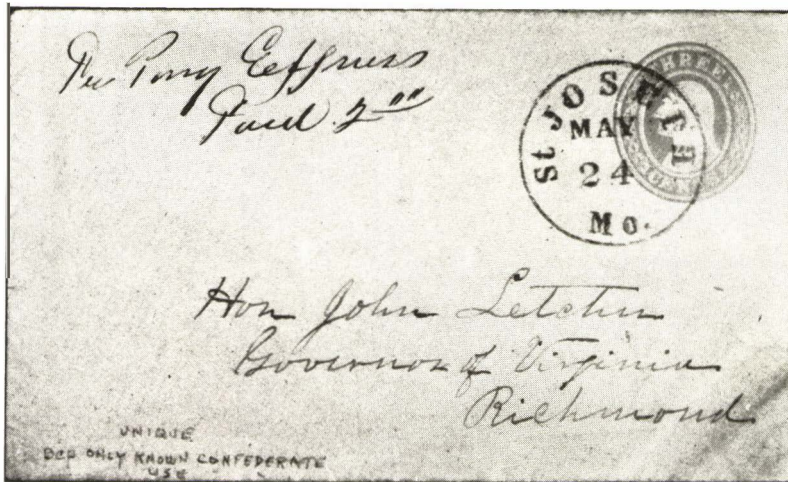 Per Pony Express
Paid 2 00
THREE
CENTS
St JOSEPH
MAY
24
Mo.
Hon John Letcher
Governor of Virginia
Richmond
UNIQUE
ONLY KNOWN CONFEDERATE
USE